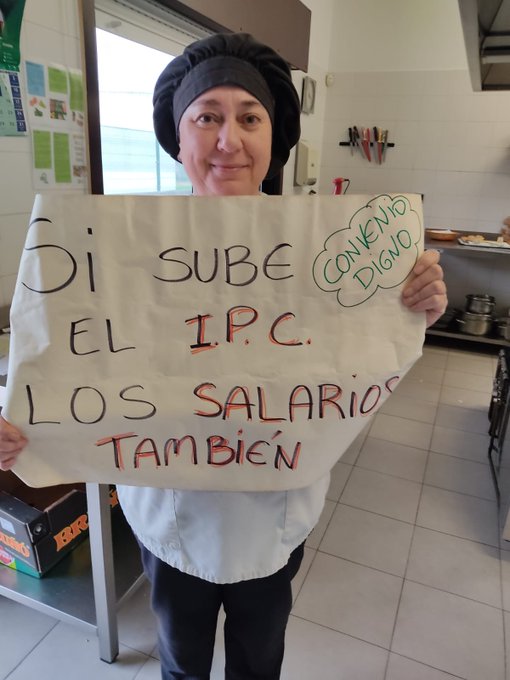 Si SUBE
CONVENIO
DIGNO
EL I.P.C.
LOS SALARIOS
TAMBIÉN